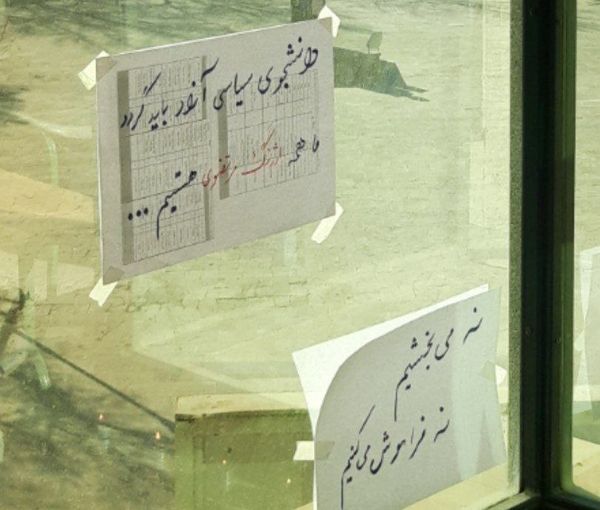 دانشجوی سیاسی آزاد باید گردد
ما همه ارژنگ مرتضوی هستیم ...
نه می‌بخشیم
نه فراموش می‌کنیم